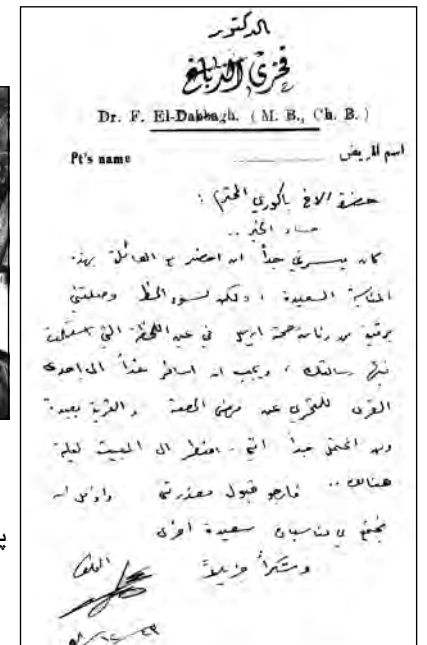 الدكتور
فخري الدباغ
Dr. F. El-Dabbagh. ( M. B., Ch. B. )
Pt's name اسم المريض
حضرة الاخ باكوري المحترم :
مساء الخير ..
كان يسرني جداً ان احضر مع العائلة بهذه
المناسبة السعيدة ، ولكن لسوء الحظ وصلتني
برقية من رئاسة صحة اربيل في عين اللحظة التي استلمت
فيها رسالتك ، ويجب ان اسافر غداً الى احدى
القرى للتحري عن مرض الحصبة . والقرية بعيدة
ومن المحتمل جداً انني اضطر الى المبيت ليلة
هناك .. فارجو قبول معذرتي واؤمل ان
نجتمع في مناسبات سعيدة اخرى
وشكراً جزيلاً
المخلص